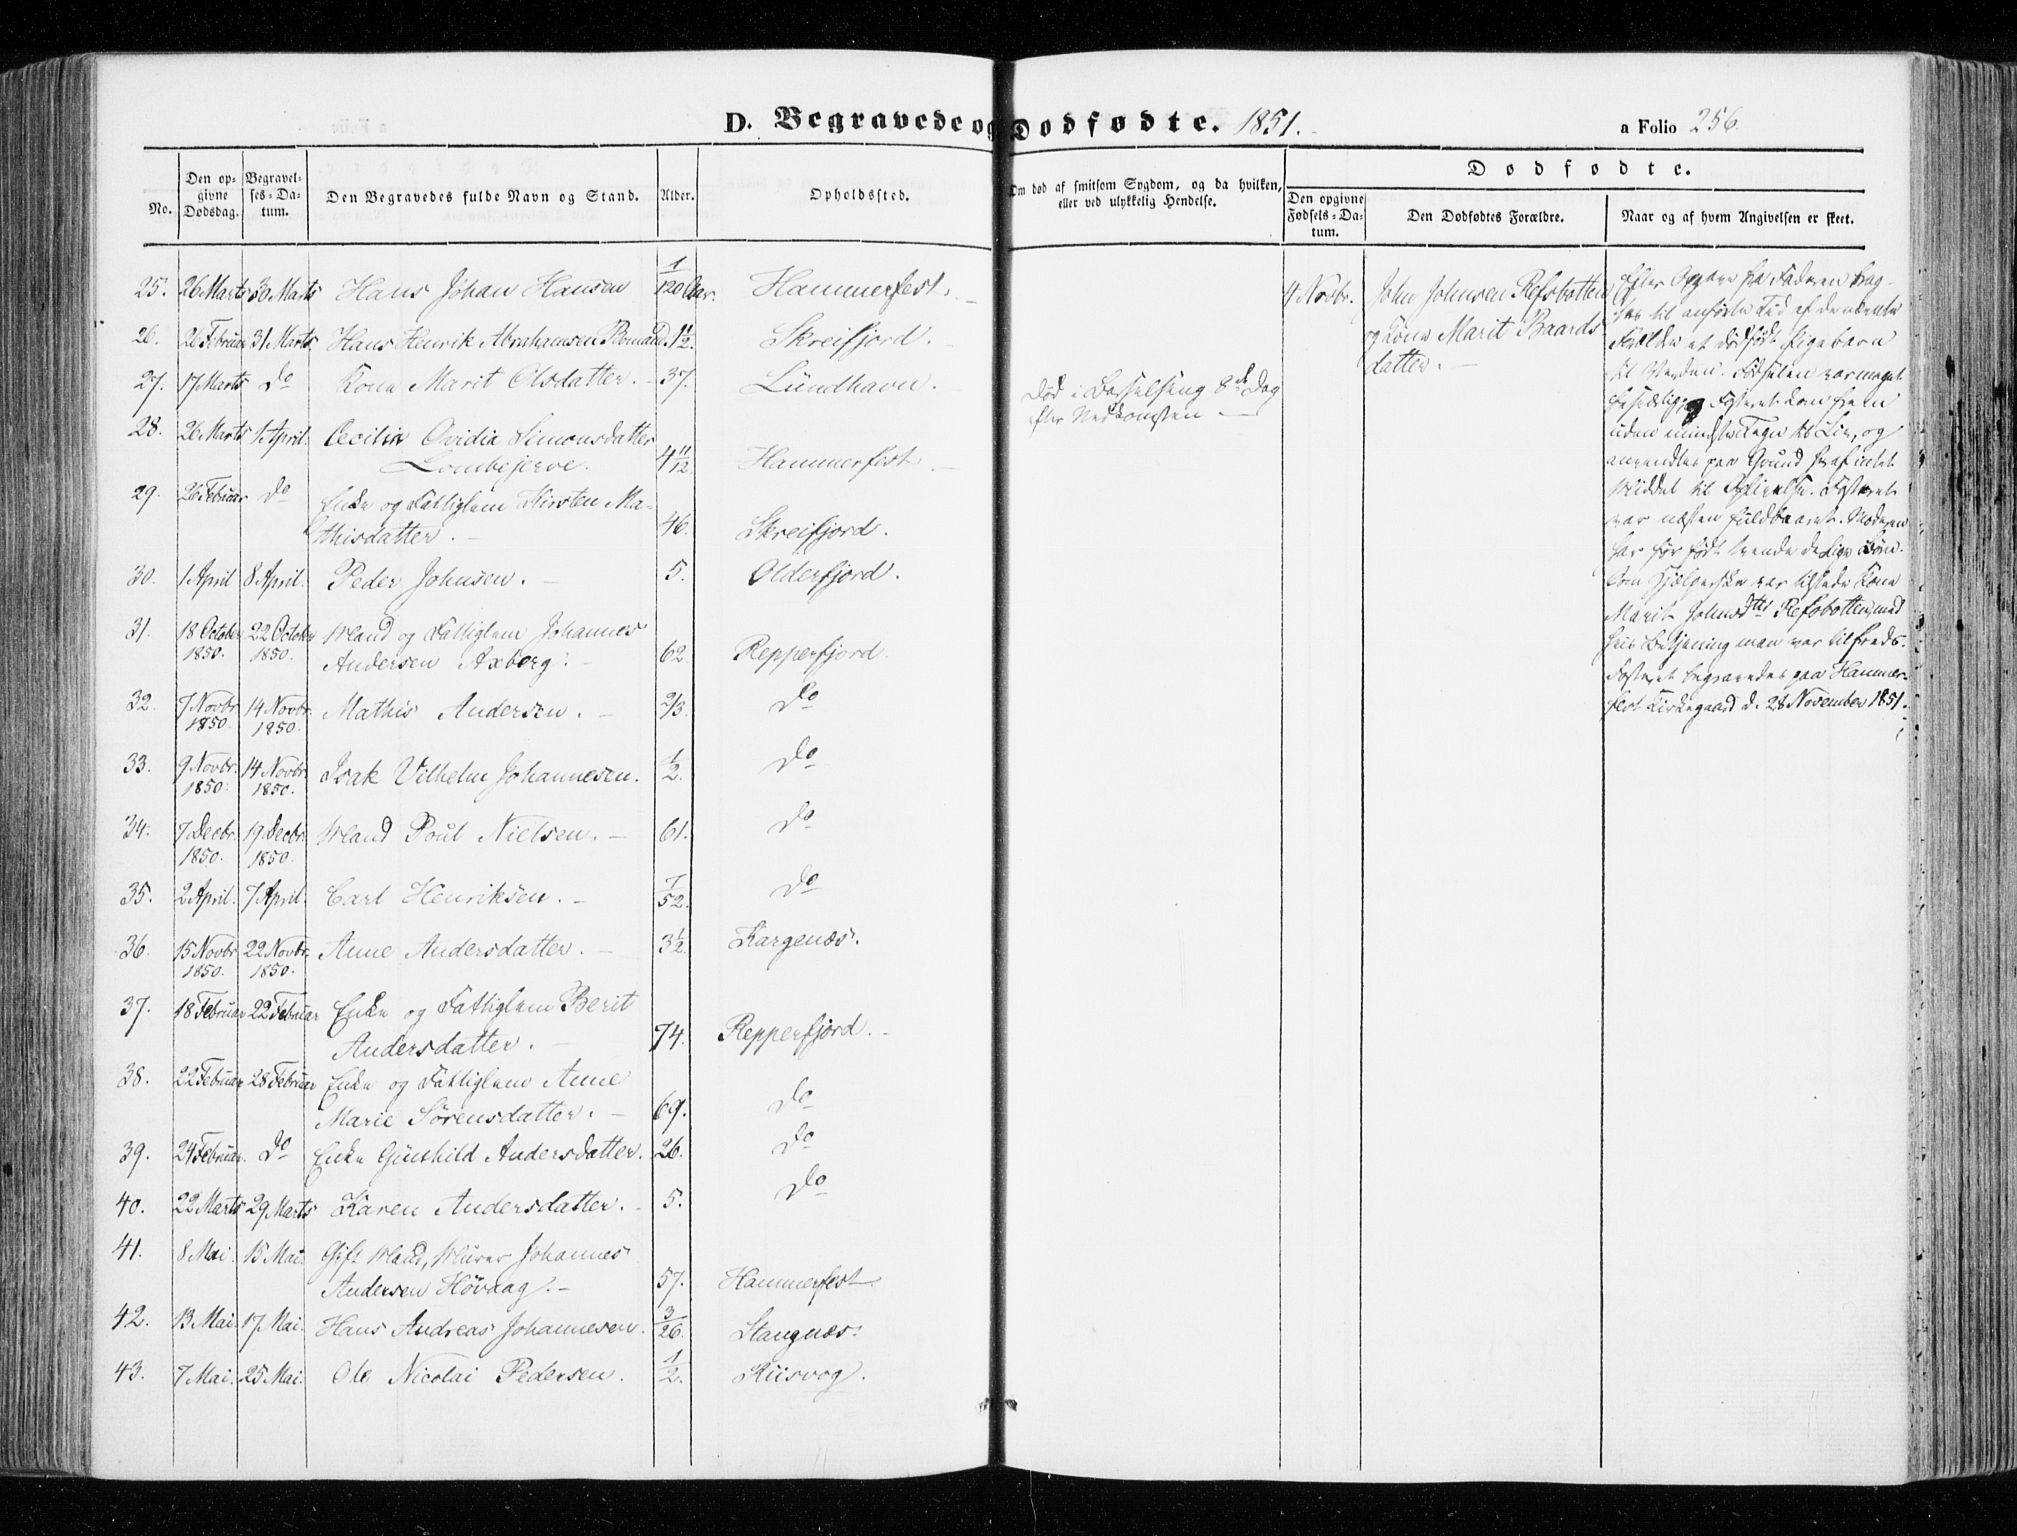 D. Begravede og Dødfødte. 1851.
a Folio 256.
No.
Den opgivne Dødsdag.
Begravelses-Datum.
Den Begravedes fulde Navn og Stand.
Alder.
Opholdssted.
Om død af smitsom Sygdom, og da hvilken,
eller ved ulykkelig Hendelse.
Dødfødte.
Den opgivne Fødsels-Datum.
Den Dødfødtes Forældre.
Naar og af hvem Angivelsen er skeet.
25. 26 Marts 30 Marts Hans Johan Hansen 1/120 Aar. Hammerfest.
26. 26 Februar 31 Marts Hans Henrik Abrahamsen 1 1/2. Skreifjord.
27. 17 Marts Do Kone Marit Olsdatter. 37. Lündhavn.
Død i Barselseng 8de Dag
efter Nedkomsten
28. 26 Marts 1 April. Cecilia Ovidia Simonsdatter
Lombejerve. 4 11/12 Hammerfest
29. 26 Februar Do Enke og Fattiglem Kirsten Ma-
thisdatter. 46. Skreifjord.
30. 1 April 8 April. Peder Johnsen. 5. Olderfjord.
31. 18 October 1850. 22 October 1850. Mand og Fattiglem Johannes
Andersen Axberg. 62. Repperfjord.
32. 7 Novbr. 1850. 14 Novbr. 1850. Mathis Andersen. 2/3. Do
33. 9 Novbr. 1850. 14 Novbr. 1850. Isak Vilhelm Johannesen. 1/2. Do
34. 7 Decbr. 1850. 19 Decbr. 1850. Mand Poül Nielsen. 61. Do
35. 2 April. 7 April. Carl Henriksen. 7/52. Do
36. 15 Novbr. 1850. 22 Novbr. 1850. Anne Andersdatter. 3 1/2. Kargenæs.
37. 18 Februar 22 Februar Enke og Fattiglem Berit
Andersdatter. 74. Repperfjord.
38. 22 Februar 28 Februar Enke og Fattiglem Anne
Marie Sørensdatter. 69. Do
39. 24 Februar. Do Enke Günhild Andersdatter. 26. Do
40. 22 Marts 29 Marts Karen Andersdatter. 5. Do
41. 8 Mai. 15 Mai. Gift Mand, Murer Johannes
Andersen Høvaag. 57. Hammerfest.
42. 13 Mai. 17 Mai. Hans Andreas Johannesen. 3/26. Stangnæs.
43. 7 Mai. 25 Mai. Ole Nicolai Pedersen. 1/2. Kiisvog.
4 Novbr.
John Johnsen Refsbotten
og Kone Marit Baards
datter.
Efter Opgave fra Faderen
til anførte Tid af
et dødfødt Pigebarn
til Verden. Fødselen var meget
Fosteret kom frem
uden mindste Tegn til Liv, og
anvendtes paa Grund heraf intet
Middel til Oplivelse. Fosteret
var næsten fuldbaaret. Moderen
har før født
Som Hjælperske var tilstede Kone
Marit Johnsdtr Refsbotten, med
hvis Betjening man var tilfreds.
Fosteret begravedes paa Hammer-
fest Kirkegaard d. 28 November 1851.